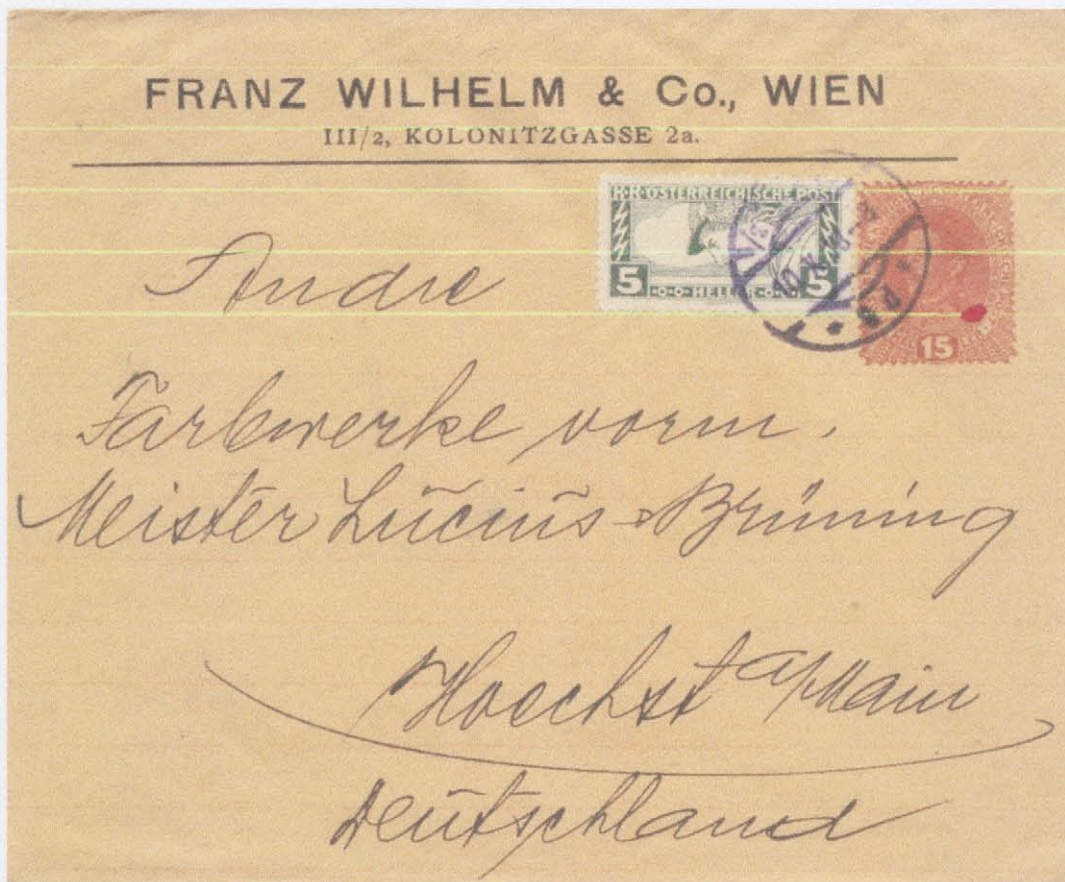 FRANZ WILHELM & Co., WIEN
III/2, KOLONITZGASSE 2a.
K·K·ÖSTERREICHISCHE POST
5 HELLER 5
15
An die
Farbwerke vorm.
Meister Lucius & Brüning
Hoechst a/Main
Deutschland